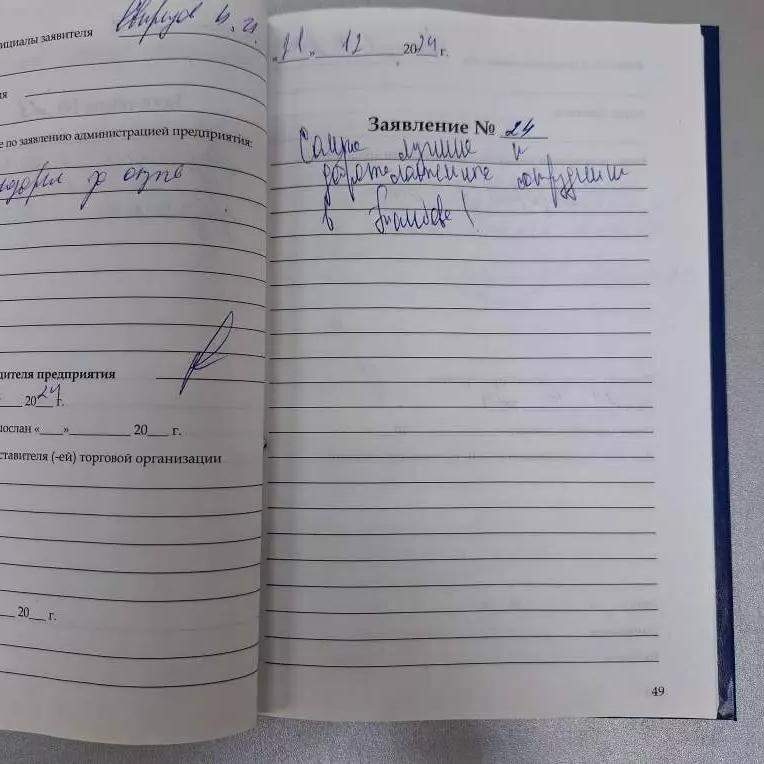 ициалы заявителя
ия
е по заявлению администрацией предприятия:
за
дителя предприятия
20 24 г.
послан «___» ________ 20___ г.
ставителя (-ей) торговой организации
20___ г.
„21„ 12 2024 г.
Заявление № 24
Самые лучшие и
доброжелательные сотрудники
в
49